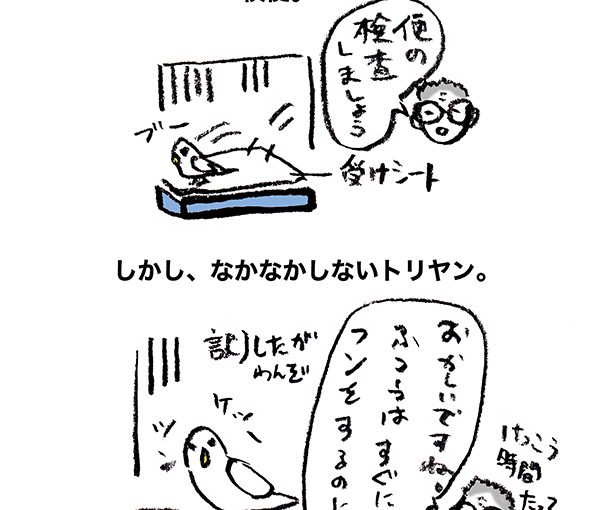 便の
検査
しましょう
ブー
受けシート
しかし、なかなかしないトリヤン。
おかしいですね。
ふつうはすぐに
フンをするのに
けっこう
時間
たって
したが
わんぞ
ケッ
ツン